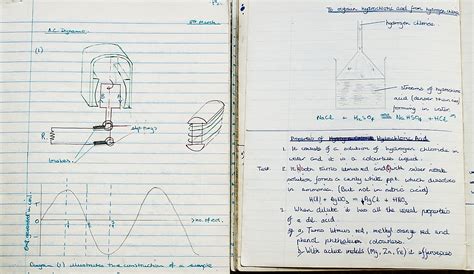 8th March
A.C. Dynamo.
(1)
N
S
slip rings
R
brushes
no. of rot.
Diagram (1) illustrates the construction of a simple
To prepare hydrochloric acid from hydrogen chloride
hydrogen chloride
streams of hydrochloric
acid (denser than water)
forming in water
NaCl + H₂SO₄ → NaHSO₄ + HCl
Properties of Hydrochloric Acid
1. It consists of a solution of hydrogen chloride in
water and it is a colourless liquid.
Test
solution forms a curdy white ppt. which dissolves
in ammonia. (But not in nitric acid)
HCl + AgNO₃ → AgCl + HNO₃
2. When dilute it has all the usual properties
of an acid.
a, Turns litmus red, methyl orange red and
phenol phthalein colourless.
b, With active metals (Mg, Zn, Fe) it effervesces